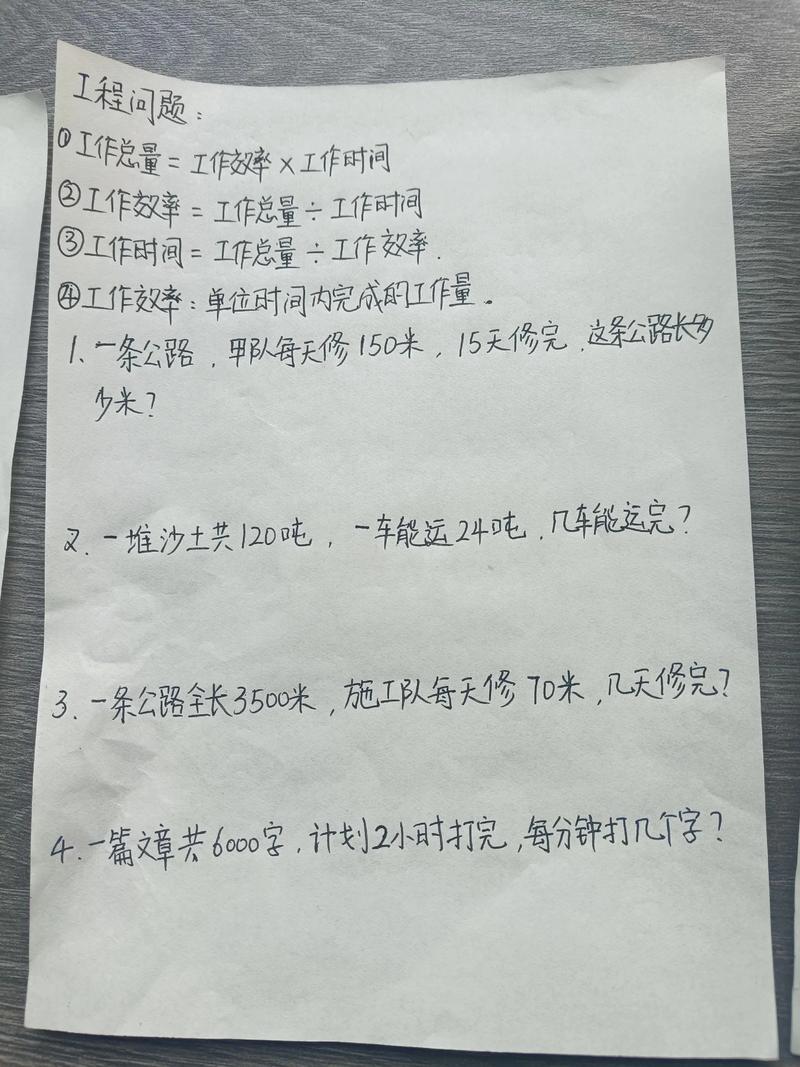 工程问题：
①工作总量=工作效率×工作时间
②工作效率=工作总量÷工作时间
③工作时间=工作总量÷工作效率.
④工作效率：单位时间内完成的工作量。
1、一条公路，甲队每天修150米，15天修完，这条公路长多
少米？
2、一堆沙土共120吨，一车能运24吨，几车能运完？
3、一条公路全长3500米，施工队每天修70米，几天修完？
4、一篇文章共6000字，计划2小时打完，每分钟打几个字？